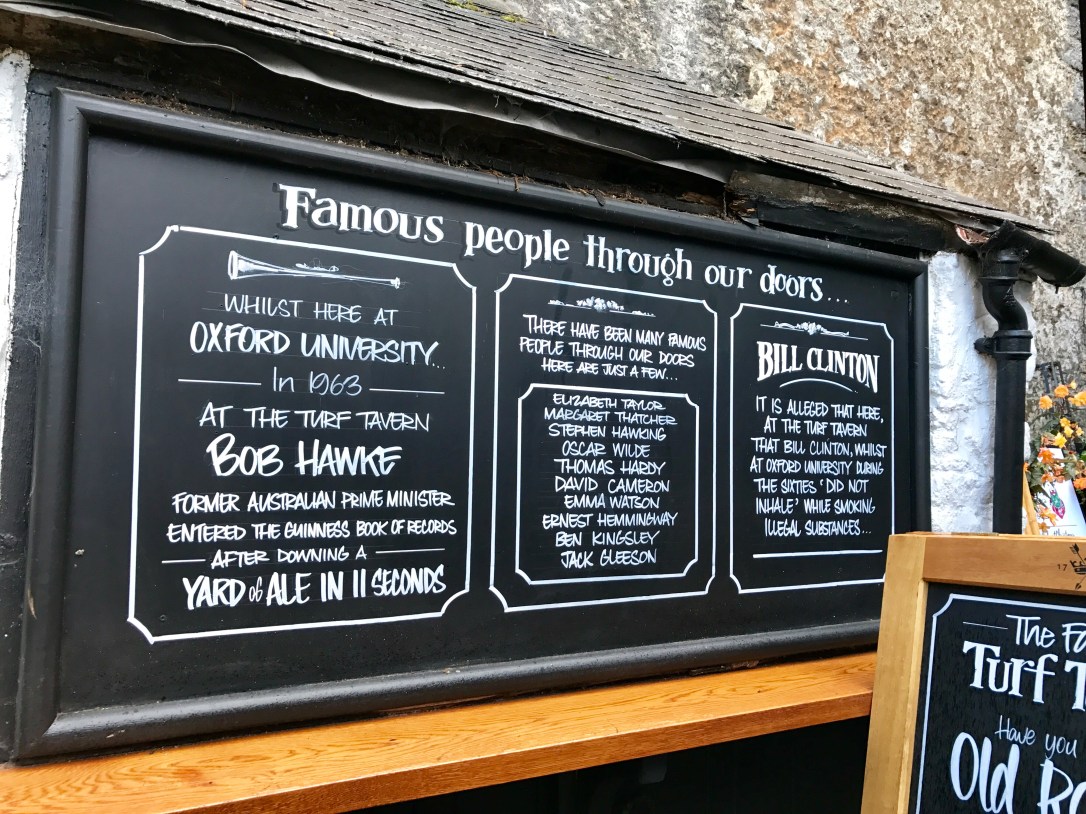 Famous people through our doors...
WHILST HERE AT
OXFORD UNIVERSITY...
In 1963
AT THE TURF TAVERN
BOB HAWKE
FORMER AUSTRALIAN PRIME MINISTER
ENTERED THE GUINNESS BOOK OF RECORDS
AFTER DOWNING A
YARD of ALE IN 11 SECONDS
THERE HAVE BEEN MANY FAMOUS
PEOPLE THROUGH OUR DOORS
HERE ARE JUST A FEW...
ELIZABETH TAYLOR
MARGARET THATCHER
STEPHEN HAWKING
OSCAR WILDE
THOMAS HARDY
DAVID CAMERON
EMMA WATSON
ERNEST HEMMINGWAY
BEN KINGSLEY
JACK GLEESON
BILL CLINTON
IT IS ALLEGED THAT HERE,
AT THE TURF TAVERN
THAT BILL CLINTON, WHILST
AT OXFORD UNIVERSITY DURING
THE SIXTIES 'DID NOT
INHALE' WHILE SMOKING
ILLEGAL SUBSTANCES...
The
Turf
Have you
Old